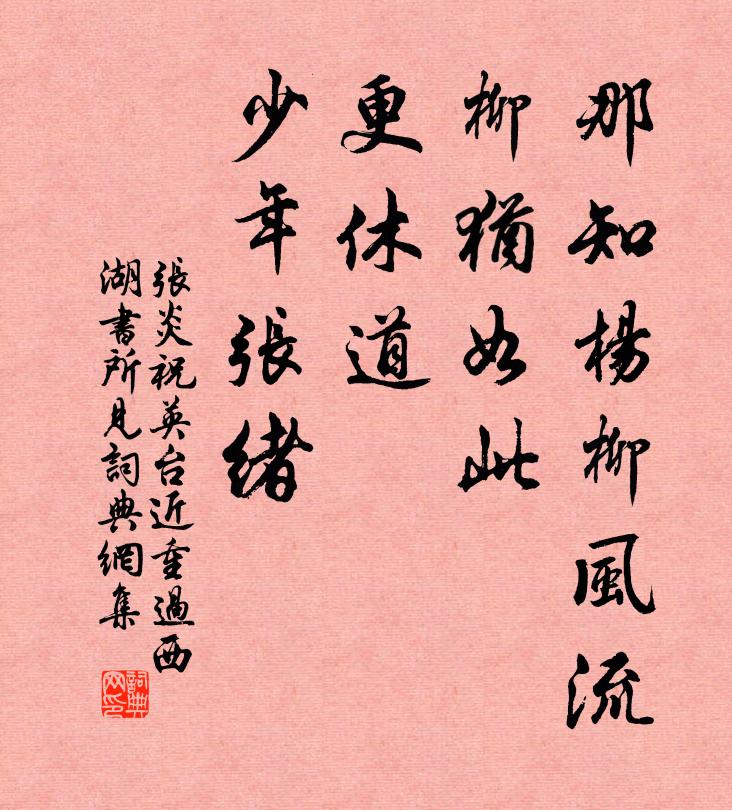 那知楊柳風流
柳猶如此
更休道
少年張緒
張炎祝英台近重過西
湖書所見詞典網集
詞典
网印